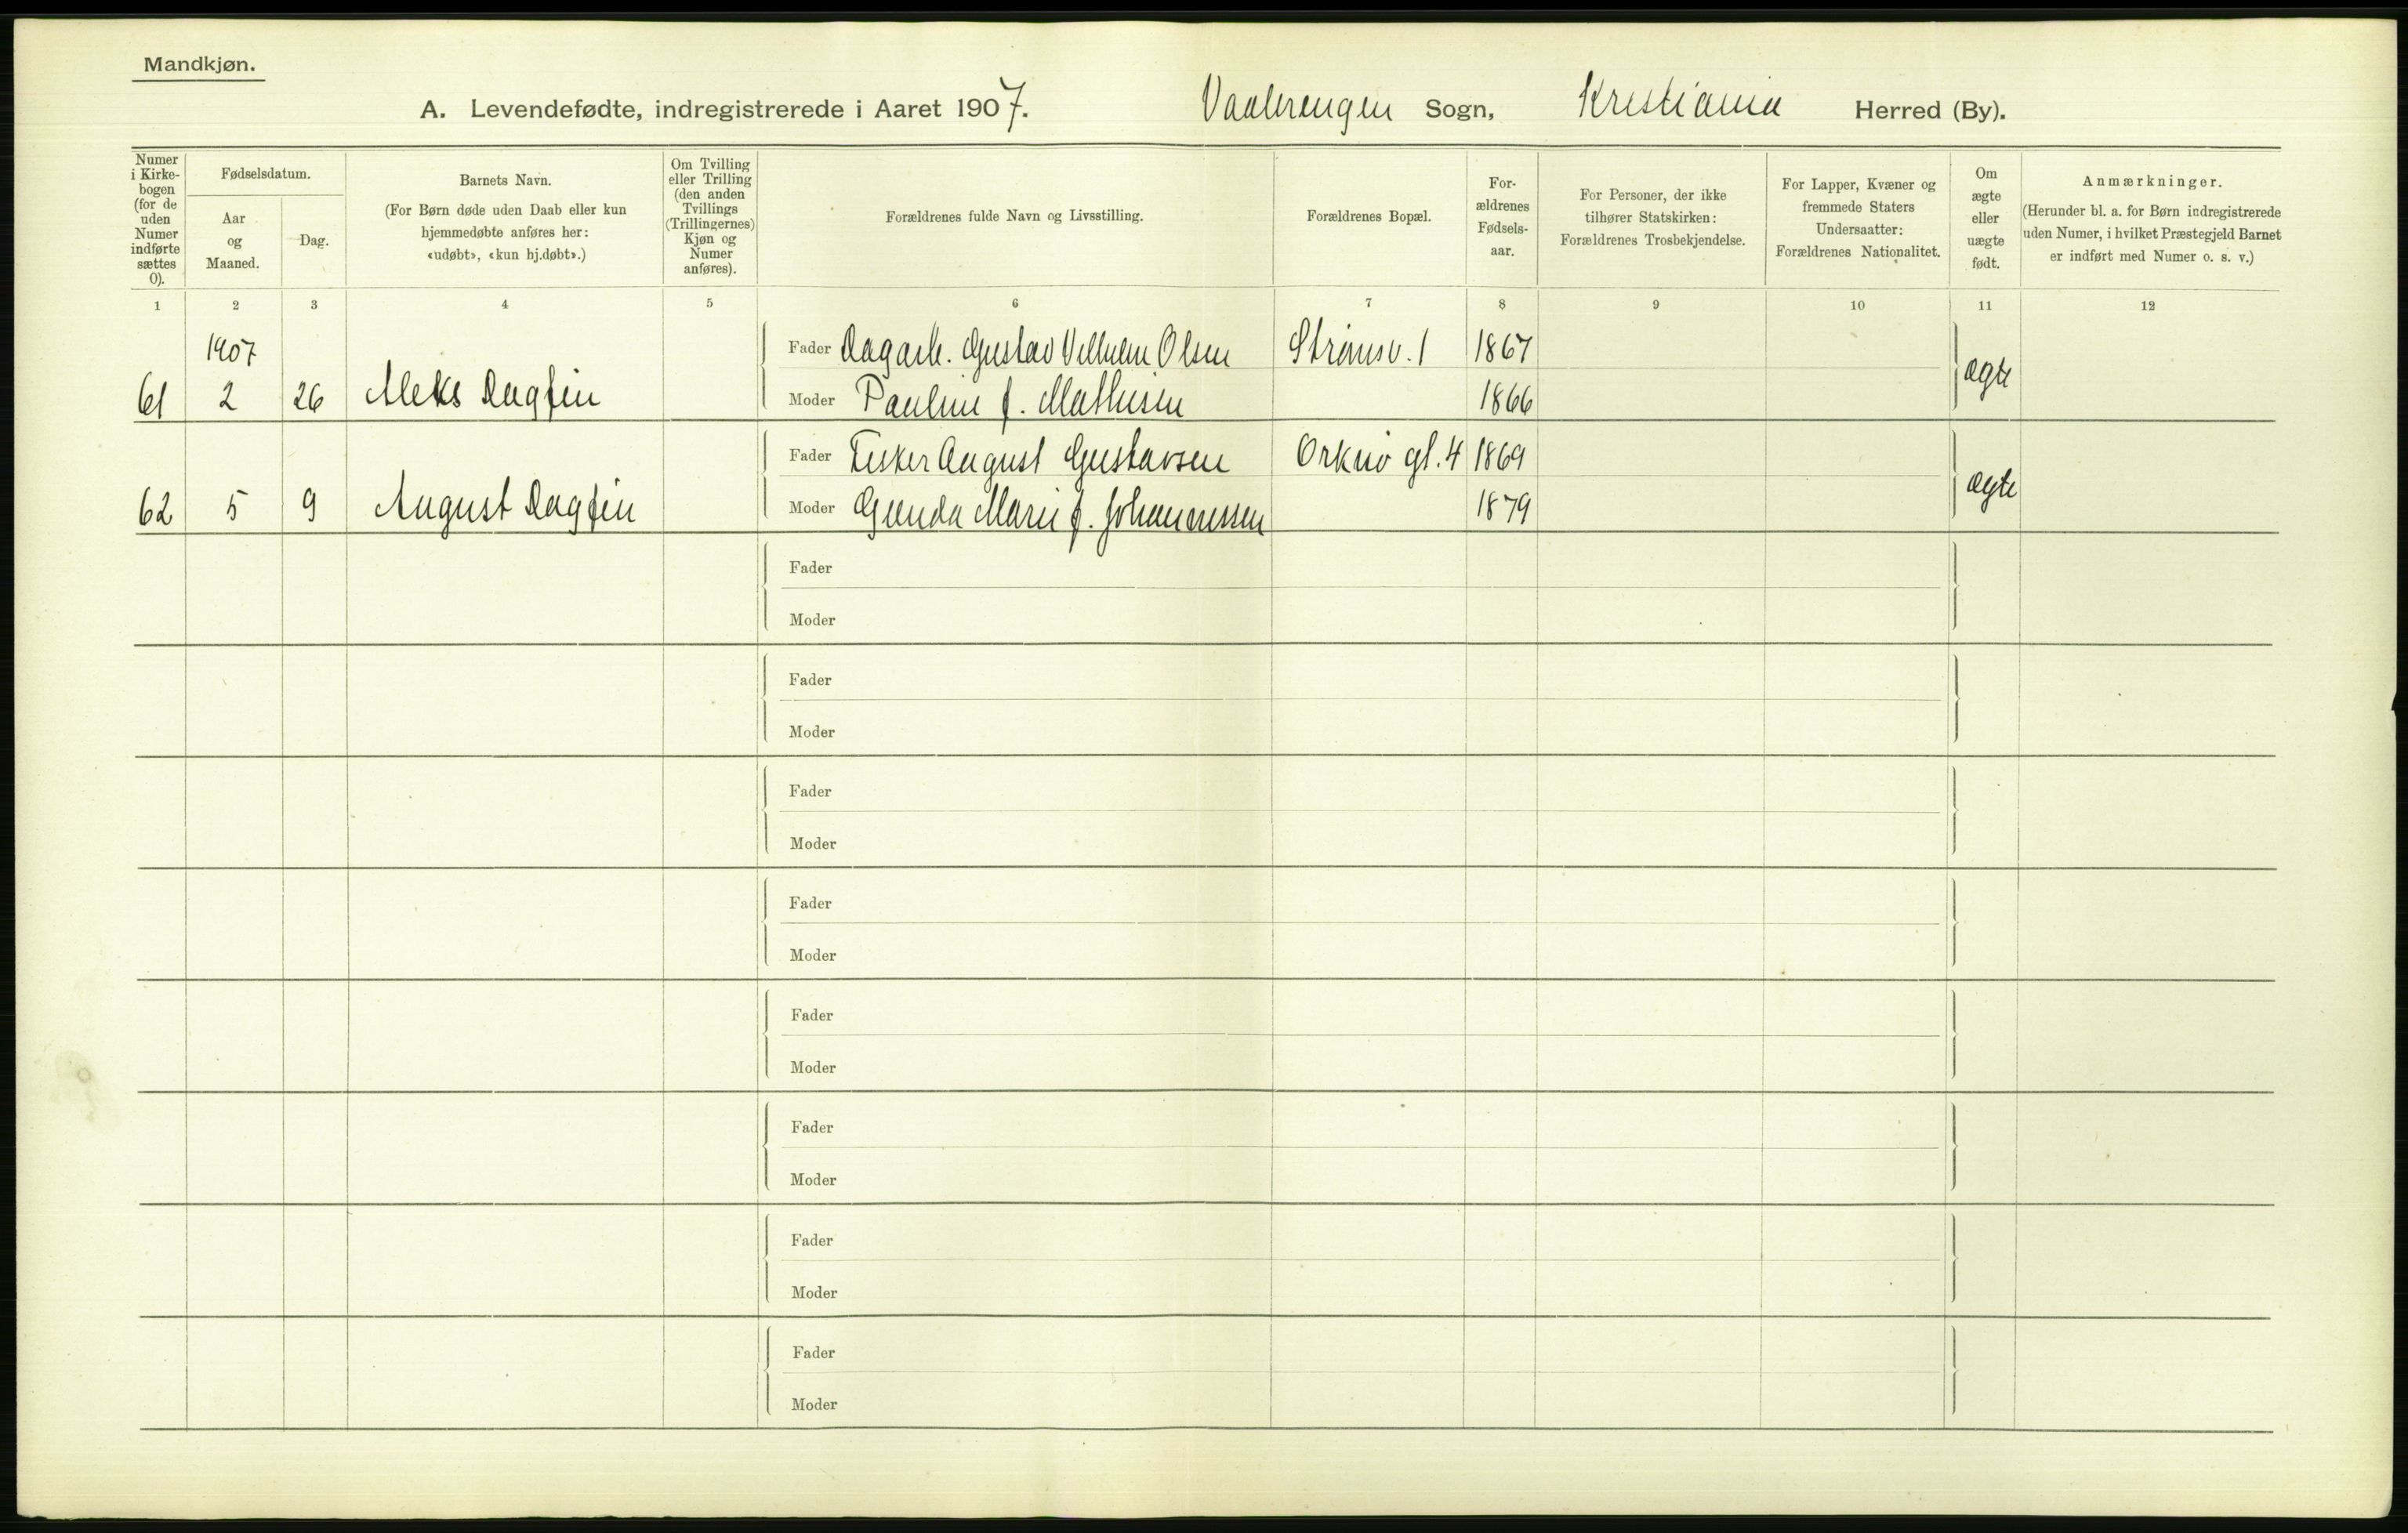 Mandkjøn.
A. Levendefødte, indregistrerede i Aaret 1907. Vaalerengen Sogn, Kristiania Herred (By).
Numer i Kirkebogen (for de uden Numer indførte sættes 0).
Fødselsdatum.
Aar og Maaned.
Dag.
Barnets Navn.
(For Børn døde uden Daab eller kun hjemmedøbte anføres her: «udøbt», «kun hj.døbt».)
Om Tvilling eller Trilling (den anden Tvillings (Trillingernes) Kjøn og Numer anføres).
Forældrenes fulde Navn og Livsstilling.
Forældrenes Bopæl.
Forældrenes Fødselsaar.
For Personer, der ikke tilhører Statskirken: Forældrenes Trosbekjendelse.
For Lapper, Kvæner og fremmede Staters Undersaatter: Forældrenes Nationalitet.
Om ægte eller uægte født.
Anmærkninger.
(Herunder bl. a. for Børn indregistrerede uden Numer, i hvilket Præstegjeld Barnet er indført med Numer o. s. v.)
1 2 3 4 5 6 7 8 9 10 11 12
1907 Fader Dagarb. Gustav Vilhelm Olsen Strømsv. 1 1867
61 2 26 Aleks Dagfin Moder Pauline f. Mathisen 1866 ægte
Fader Fisker August Gustavsen Orknø gt. 4 1869
62 5 9 August Dagfin Moder Gunda Marie f. Johannessen 1879 ægte
Fader
Moder
Fader
Moder
Fader
Moder
Fader
Moder
Fader
Moder
Fader
Moder
Fader
Moder
Fader
Moder